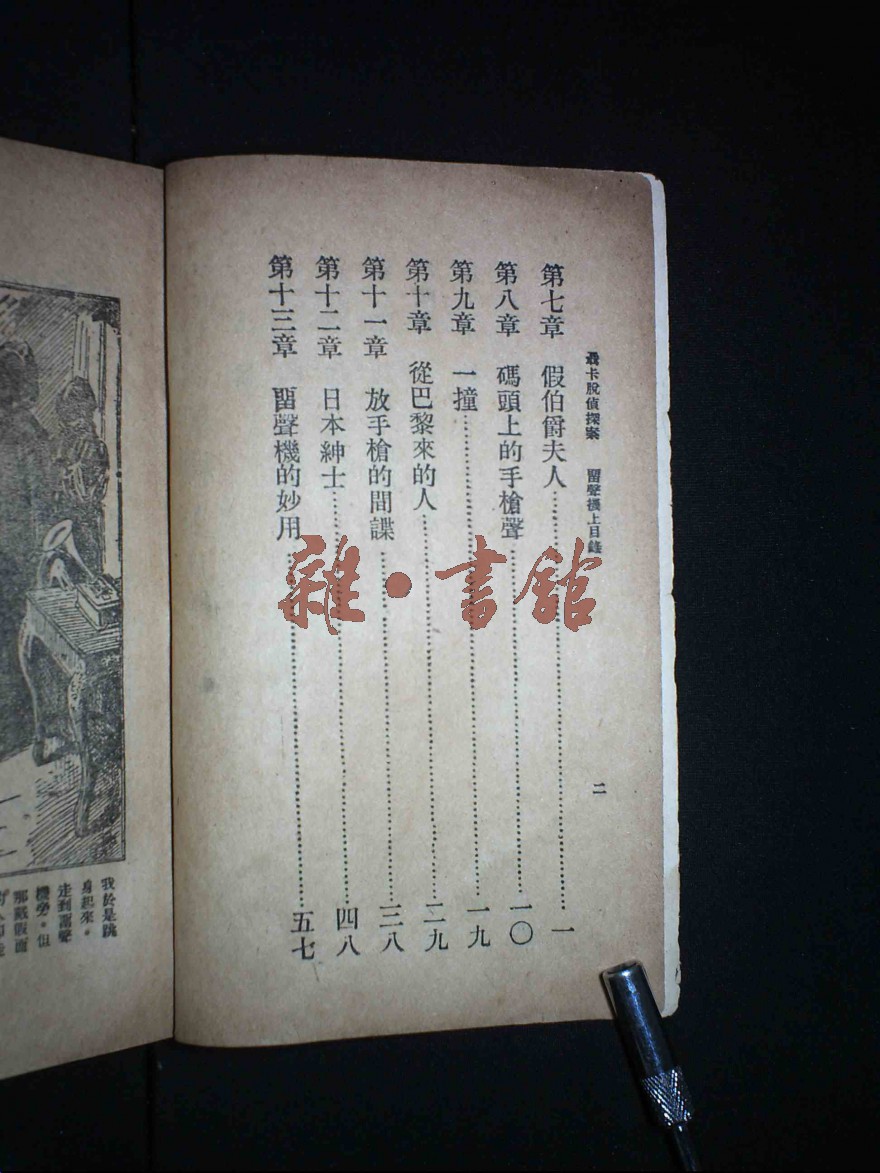 聶卡脫偵探案　留聲機上目錄
二
第七章　假伯爵夫人…………一
第八章　碼頭上的手槍聲…………一〇
第九章　一撞…………一九
第十章　從巴黎來的人…………二九
第十一章　放手槍的間諜…………三八
第十二章　日本紳士…………四八
第十三章　留聲機的妙用…………五七
雜·書館
我於是跳
身起來。
走到留聲
機旁。但
那戴假面